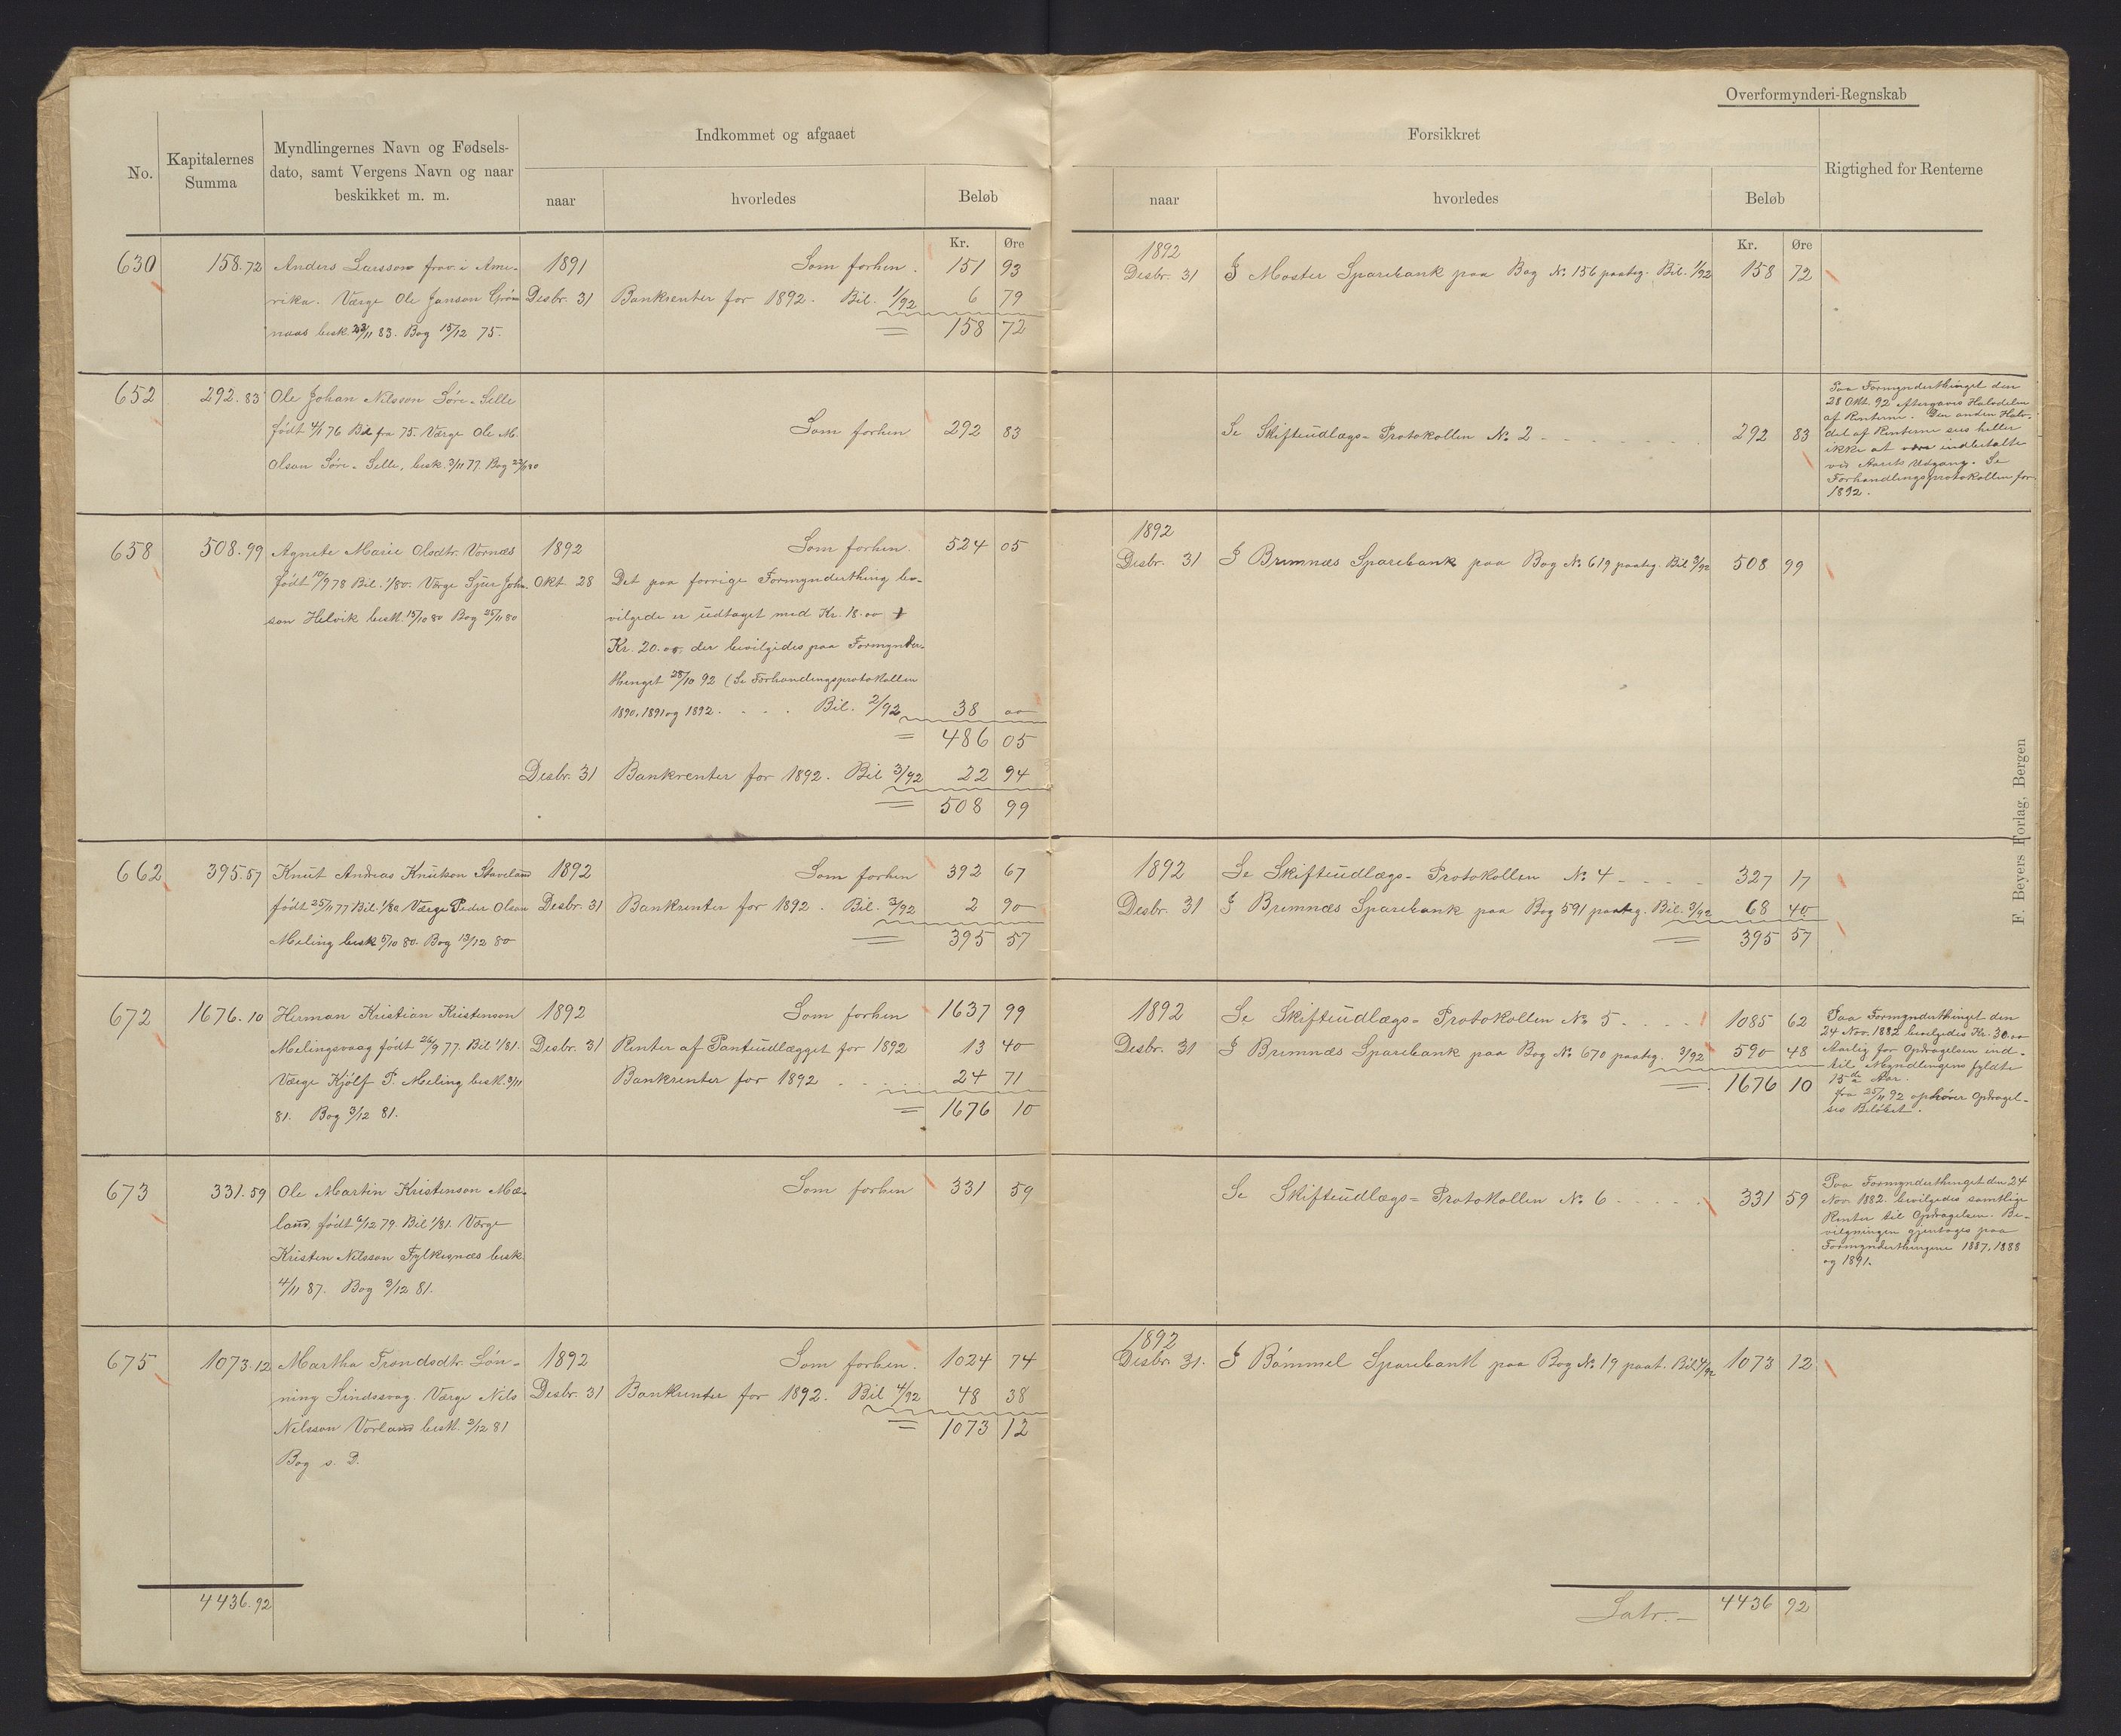 Overformynderi-Regnskab
No.
Kapitalernes
Summa
Myndlingernes Navn og Fødsels-
dato, samt Vergens Navn og naar
beskikket m. m.
Indkommet og afgaaet
naar
hvorledes
Beløb
Kr. Øre
Forsikkret
naar
hvorledes
Beløb
Kr. Øre
Rigtighed for Renterne
630
158.72
Anders Larsson frav. i Ame-
rika. Værge Ole Janson Grön
naas besk. 23/11 83. Bog 15/12 75.
1891
Som forhen. 151 93
Desbr. 31 Bankrenter for 1892. Bil. 1/92 6 79
= 158 72
1892
Desbr. 31 I Moster Sparebank paa Bog No 156 paateg. Bil. 1/92 158 72
652
292.83
Ole Johan Nilsson Söre-Selle
født 4/1 76 Bil fra 75. Værge Ole M.
Olson Söre-Selle, besk. 3/11 77. Bog
Som forhen 292 83
Se Skifteudlægs-Protokollen No 2 - - - 292 83
Paa Formynderthinget den
28 Okt. 92 eftergaves Halvdelen
af Renterne. Den anden Halv-
del af Renterne sees heller
ikke at være indbetalte
ved Aarets Udgang. Se
Forhandlingsprotokollen for
1892.
658
508.99
Agnete Marie Olsdtr. Vornæs
født 10/9 78 Bil. 1/80. Værge Sjur John-
son Helvik besk. 15/10 80 Bog 25/11 80
1892
Som forhen. 524 05
Okt. 28 Det paa forrige Formynderthing be-
vilgede er udtaget med Kr. 18.00 +
Kr. 20.00, der bevilgedes paa Formynder-
thinget 28/10 92 (Se Forhandlingsprotokollen
1890, 1891 og 1892. - - - Bil. 2/92 38 00
= 486 05
Desbr. 31 Bankrenter for 1892. Bil 3/92 22 94
= 508 99
1892
Desbr. 31 I Bremnæs Sparebank paa Bog No 619 paateg. Bil 3/92 508 99
662
395.57
Knut Andreas Knutson Staveland
født 25/11 77 Bil. 1/80 Værge Peder Olson
Meling besk 5/10 80. Bog 13/12 80
1892
Som forhen 392 67
Desbr. 31 Bankrenter for 1892. Bil. 3/92 2 90
= 395 57
1892 Se Skifteudlægs-Protokollen No 4 - - - 327 17
Desbr. 31 I Bremnæs Sparebank paa Bog 591 paateg. Bil. 3/92 68 40
= 395 57
672
1676.10
Herman Kristian Kristenson
Melingsvaag født 26/9 77. Bil 1/81.
Værge Kjölf P. Meling besk. 3/11
81. Bog 3/12 81.
1892
Som forhen 1637 99
Desbr. 31 Renter af Panteudlægget for 1892 13 40
Bankrenter for 1892 - - - 24 71
= 1676 10
1892 Se Skifteudlægs-Protokollen No 5 - - - 1085 62
Desbr. 31 I Bremnæs Sparebank paa Bog No 670 paateg. 3/92 590 48
= 1676 10
Paa Formynderthinget den
24 Nov. 1882 bevilgedes Kr. 30.00
Aarlig for Opdragelsen ind-
til Myndlingens fyldte
15de Aar.
fra 25/11 92 ophörer Opdragel-
ses Belöbet.
673
331.59
Ole Martin Kristenson Mæ-
land, født 6/12 79. Bil 1/81. Værge
Kristen Nilsson Fylkesnæs besk.
4/11 87. Bog 3/12 81.
Som forhen 331 59
Se Skifteudlægs-Protokollen No 6 - - - 331 59
Paa Formynderthinget den 24
Nov. 1882. bevilgedes samtlige
Renter til Opdragelsen. Be-
vilgningen gjentoges paa
Formynderthingene 1887, 1888
og 1891.
675
1073.12
Martha Trondsdtr. Lön-
ning Sindssvag. Værge Nils
Nilsson Vorland besk. 2/12 81
Bog s. D.
1892
Som forhen. 1024 74
Desbr. 31 Bankrenter for 1892. Bil 4/92 48 38
= 1073 12
1892
Desbr. 31. I Bömmel Sparebank paa Bog No 19 paat. Bil 4/92 1073 12
4436.92
Latr. - 4436 92
F. Beyers Forlag, Bergen